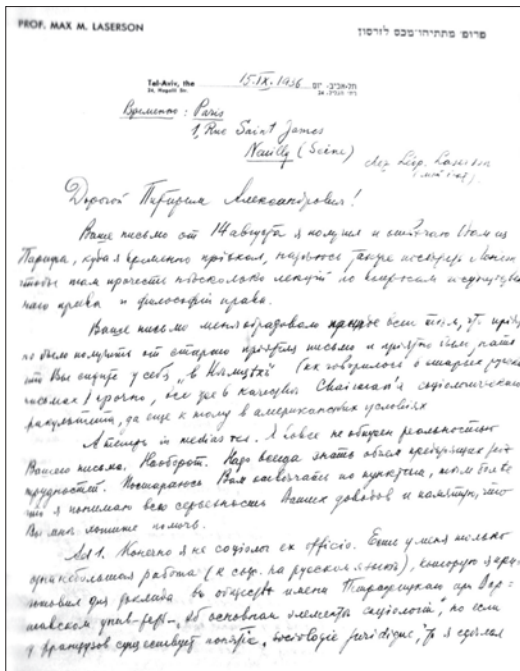 PROF. MAX M. LASERSON
פרופ׳ מתתיהו-מכס לזרסון
Tel-Aviv, the 15.IX.1936 תל-אביב, יום
Временно: Paris
1, Rue Saint James
Neuilly (Seine)
Léop. Laserson
Дорогой Питирим Александрович!
Ваше письмо от 14 августа я получил и отвечаю Вам из
Парижа, куда я временно приехал, надеюсь также посетить Лондон
чтобы там прочесть несколько лекций по вопросам
права и философии права.
Ваше письмо меня обрадовало всем тем, что
было получить от старого приятеля письмо и приятно было
что Вы сидите у себя (как говорилось в старых русских
) прочно, все уже в качестве Chairman'а социологического
факультета, да еще к тому в американских условиях
А теперь in medias res. Я вовсе не обижен реальностью
Вашего письма. Наоборот. Надо всегда знать объем
трудностей. Постараюсь Вам отвечать по пунктам, тем более
что я понимаю всю серьезность Ваших доводов и
Вы мне хотите помочь.
Ad 1. Конечно я не социолог ex officio. Есть у меня только
одна небольшая работа (к сож. на русском языке), которую я
для доклада в обществе имени при
унив-те „Об основном элементе социологии", но если
у французов существует понятие „sociologie juridique", то я сделал